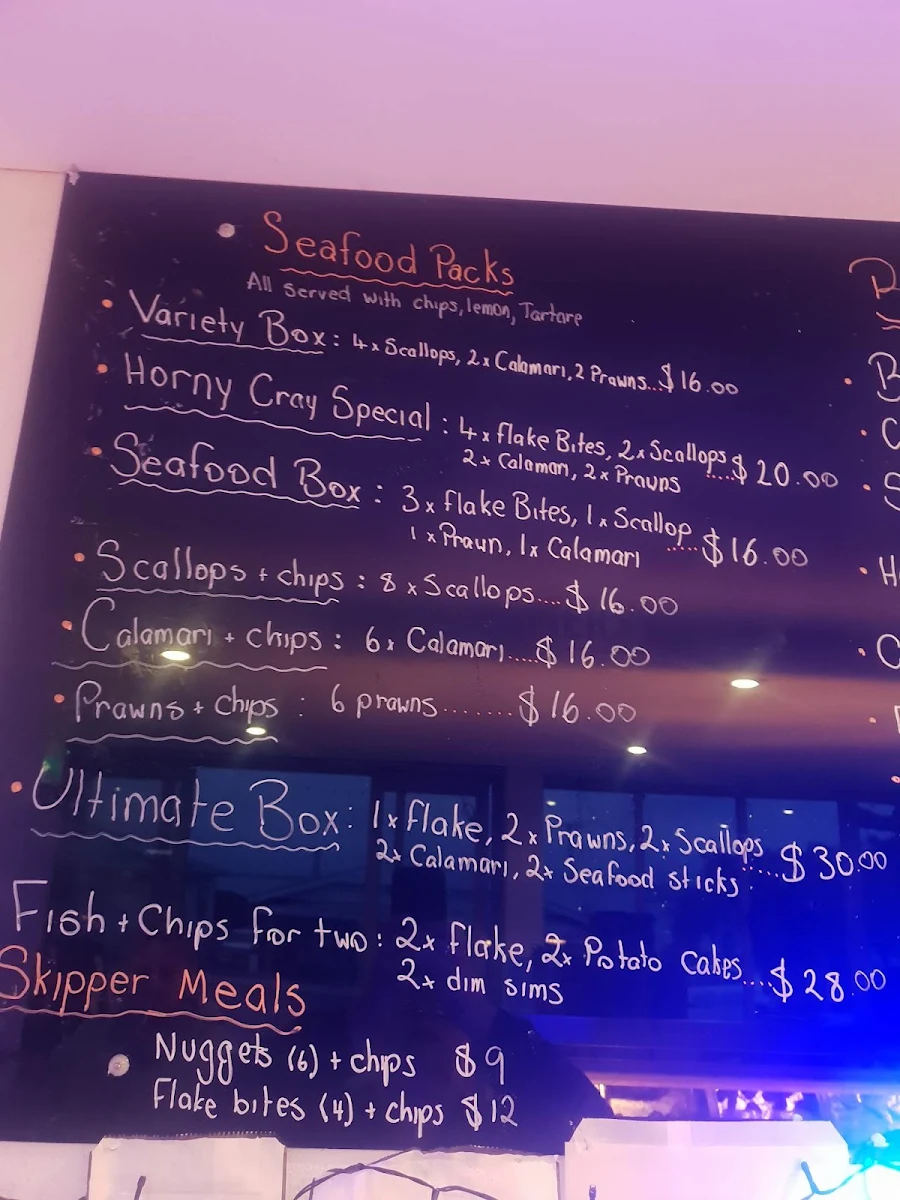 Seafood Packs
All Served with chips, lemon, Tartare
• Variety Box: 4x Scallops, 2x Calamari, 2 Prawns...$16.00
• Horny Cray Special: 4x flake Bites, 2x Scallops
2x Calamari, 2x Prawns .....$20.00
• Seafood Box: 3x flake Bites, 1x Scallop
1x Prawn, 1x Calamari .....$16.00
• Scallops + chips: 8x Scallops...$16.00
• Calamari + chips: 6x Calamari....$16.00
• Prawns + chips: 6 prawns.......$16.00
• Ultimate Box: 1x flake, 2x Prawns, 2x Scallops
2x Calamari, 2x Seafood sticks.....$30.00
Fish + Chips for two: 2x flake, 2x Potato cakes....$28.00
2x dim sims
Skipper Meals
Nuggets (6) + chips $9
Flake bites (4) + chips $12